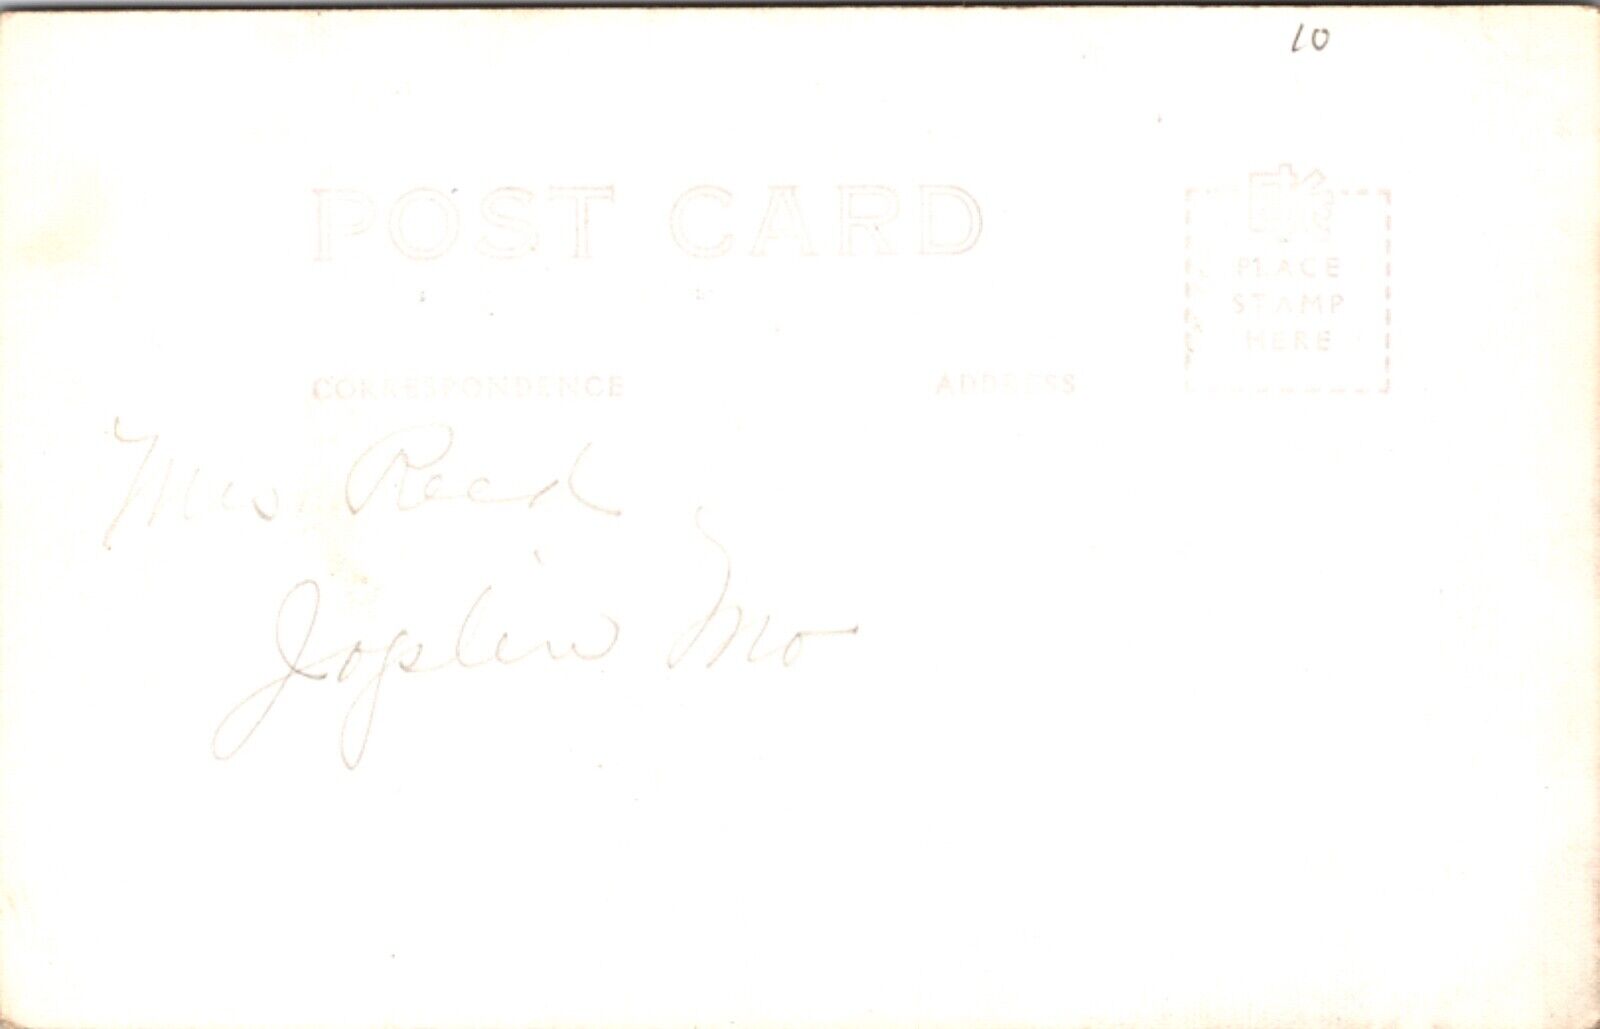 10
POST CARD
PLACE
STAMP
HERE
CORRESPONDENCE
ADDRESS
Mrs Reed
Joplin Mo